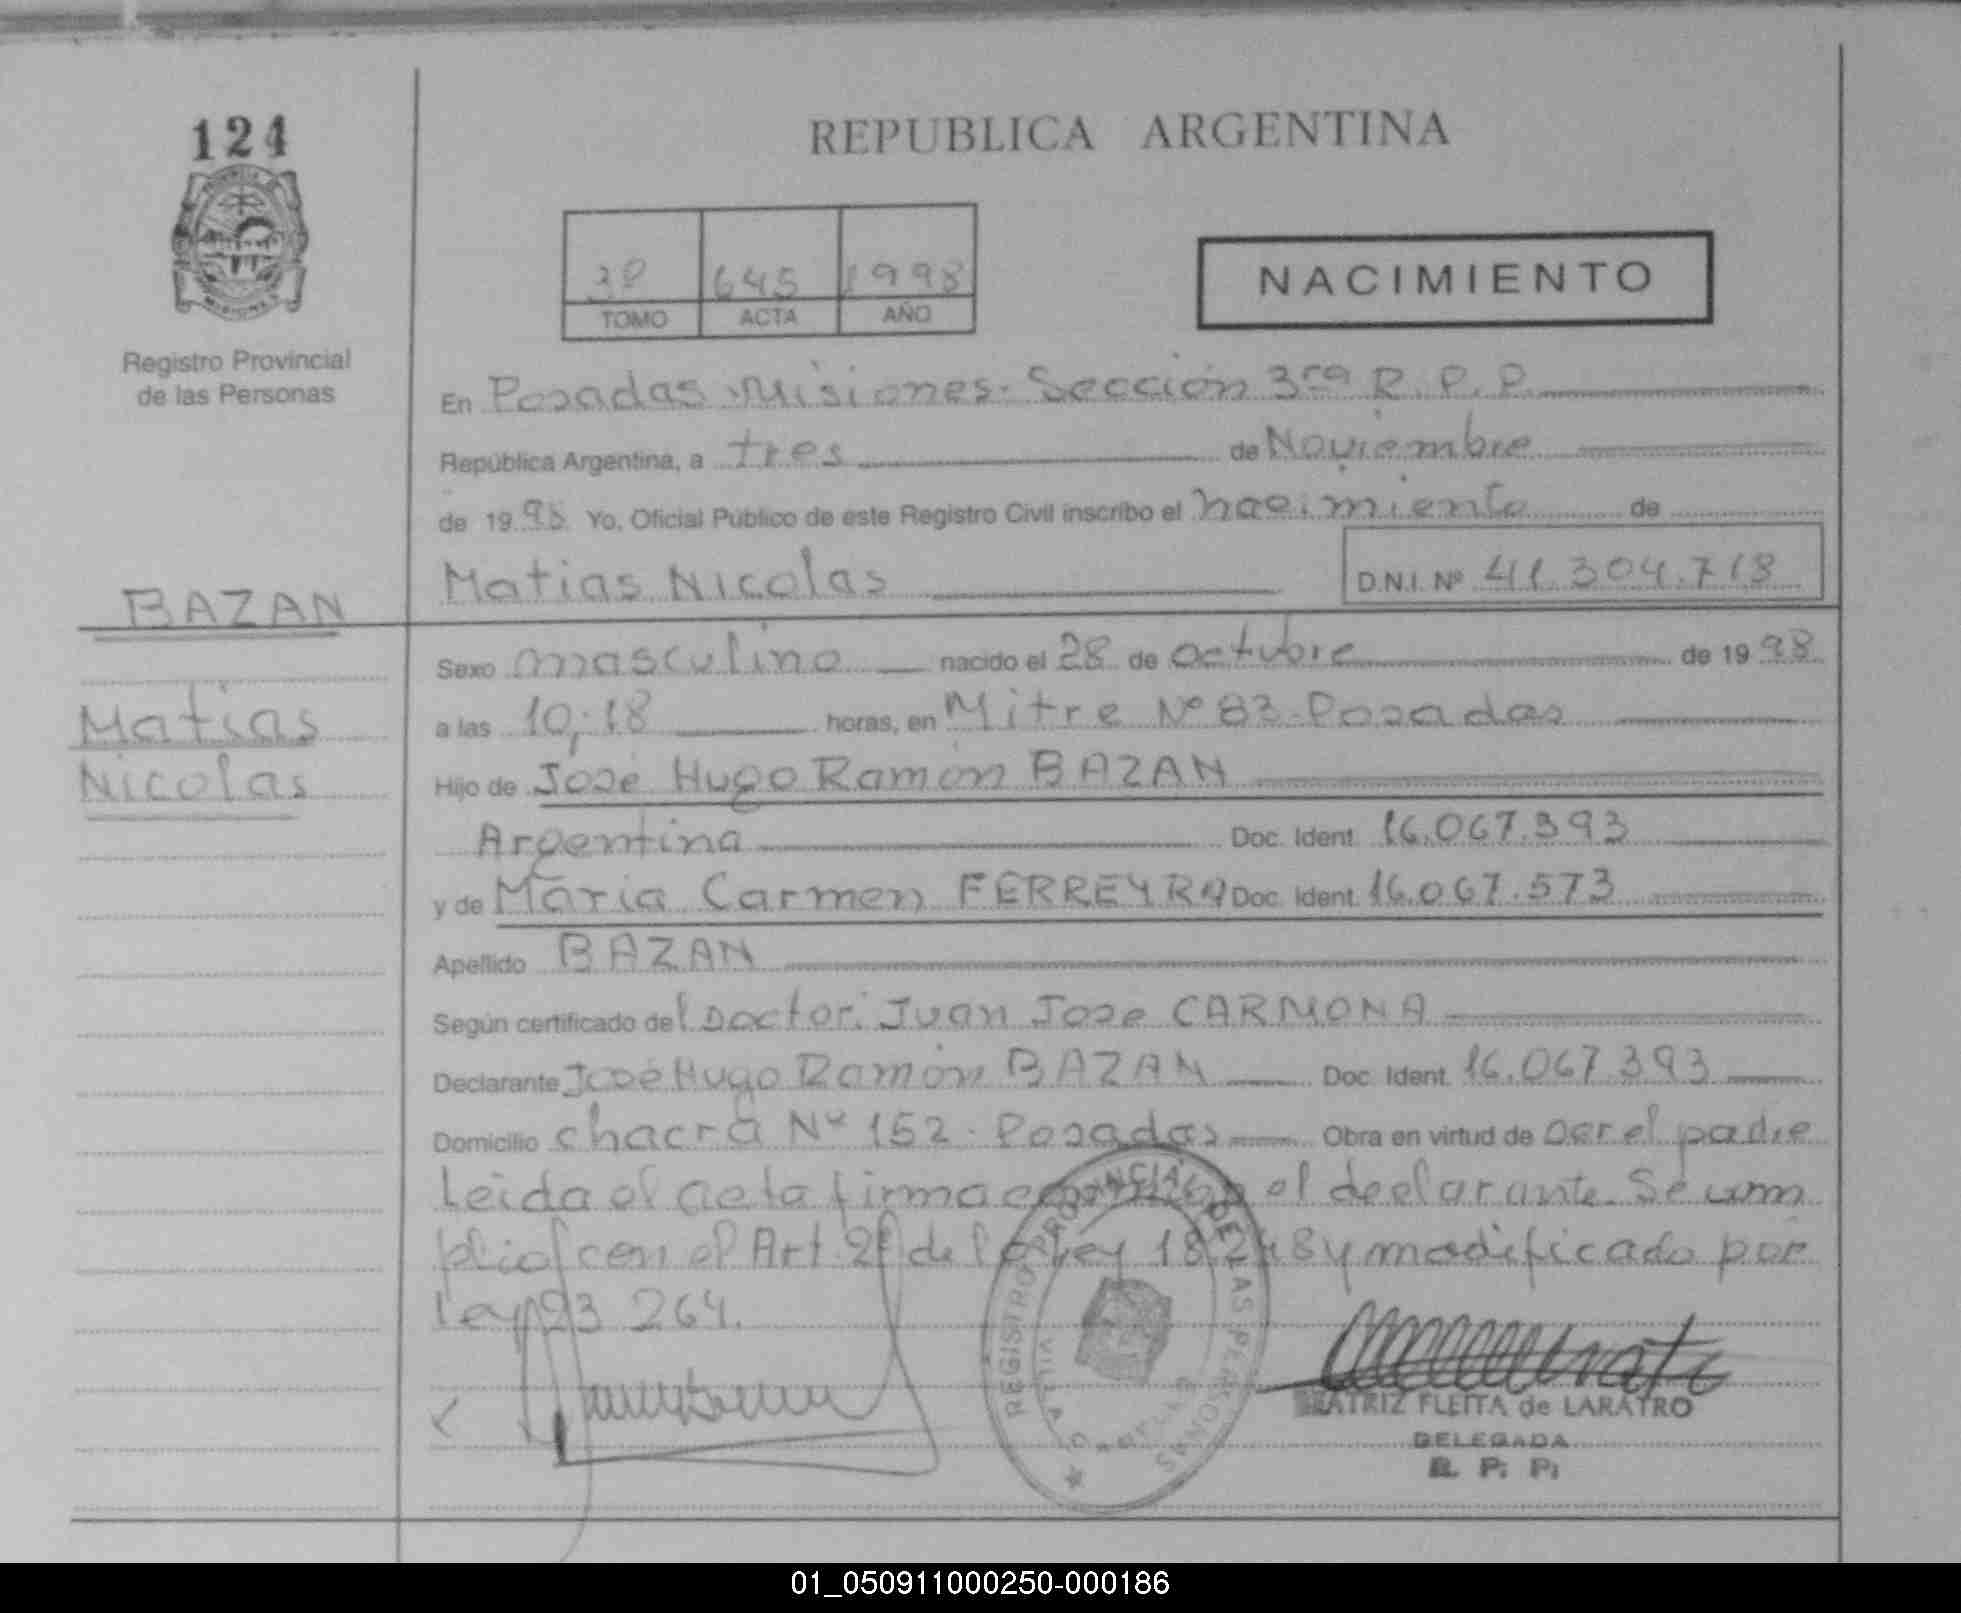 124
Registro Provincial
de las Personas
BAZAN
Matias
Nicolas
REPUBLICA ARGENTINA
3º 645 1998
TOMO ACTA AÑO
NACIMIENTO
En Posadas Misiones. Sección 3ra R. P. P.
República Argentina, a tres de Noviembre
de 19 98 Yo, Oficial Público de este Registro Civil inscribo el nacimiento de
Matias Nicolas D.N.I. Nº 41.304.718
Sexo masculino nacido el 28 de octubre de 19 98
a las 10,18 horas, en Mitre Nº 83 - Posadas
Hijo de José Hugo Ramón BAZAN
Argentina Doc. Ident. 16.067.393
y de Maria Carmen FERREYRA Doc. Ident. 16.067.573
Apellido BAZAN
Según certificado del Doctor: Juan Jose CARMONA
Declarante José Hugo Ramón BAZAN Doc. Ident. 16.067.393
Domicilio chacra Nº 152 - Posadas Obra en virtud de ser el padre
Leida el acta firma conmigo el declarante. Se cum
plio con el Art 2º de la Ley 18.248 y modificado por
Ley 23 264.
REGISTRO PROVINCIAL DE LAS PERSONAS
BEATRIZ FLEITA de LARATRO
DELEGADA
R. P. P.
01_050911000250-000186